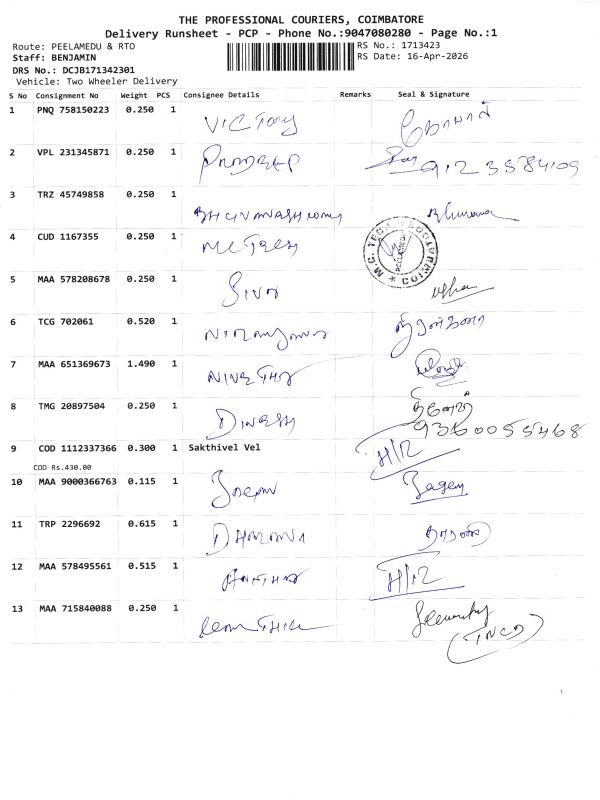 THE PROFESSIONAL COURIERS, COIMBATORE
Delivery Runsheet - PCP - Phone No.:9047080280 - Page No.:1
Route: PEELAMEDU & RTO RS No.: 1713423
Staff: BENJAMIN RS Date: 16-Apr-2026
DRS No.: DCJB171342301
Vehicle: Two Wheeler Delivery
S No Consignment No Weight PCS Consignee Details Remarks Seal & Signature
1 PNQ 758150223 0.250 1 VICTORY
2 VPL 231345871 0.250 1 PRADEEP 9123584109
3 TRZ 45749858 0.250 1 Bhuvana
4 CUD 1167355 0.250 1 PEELAMEDU COIMBATORE
5 MAA 578208678 0.250 1 SIVA Usha
6 TCG 702061 0.520 1 NIRANJANA
7 MAA 651369673 1.490 1 NIVETHA
8 TMG 20897504 0.250 1 DINESH 9360055468
9 COD 1112337366 0.300 1 Sakthivel Vel H/R
COD Rs.430.00
10 MAA 9000366763 0.115 1
11 TRP 2296692 0.615 1 DHARANI
12 MAA 578495561 0.515 1 H/R
13 MAA 715840088 0.250 1 Security